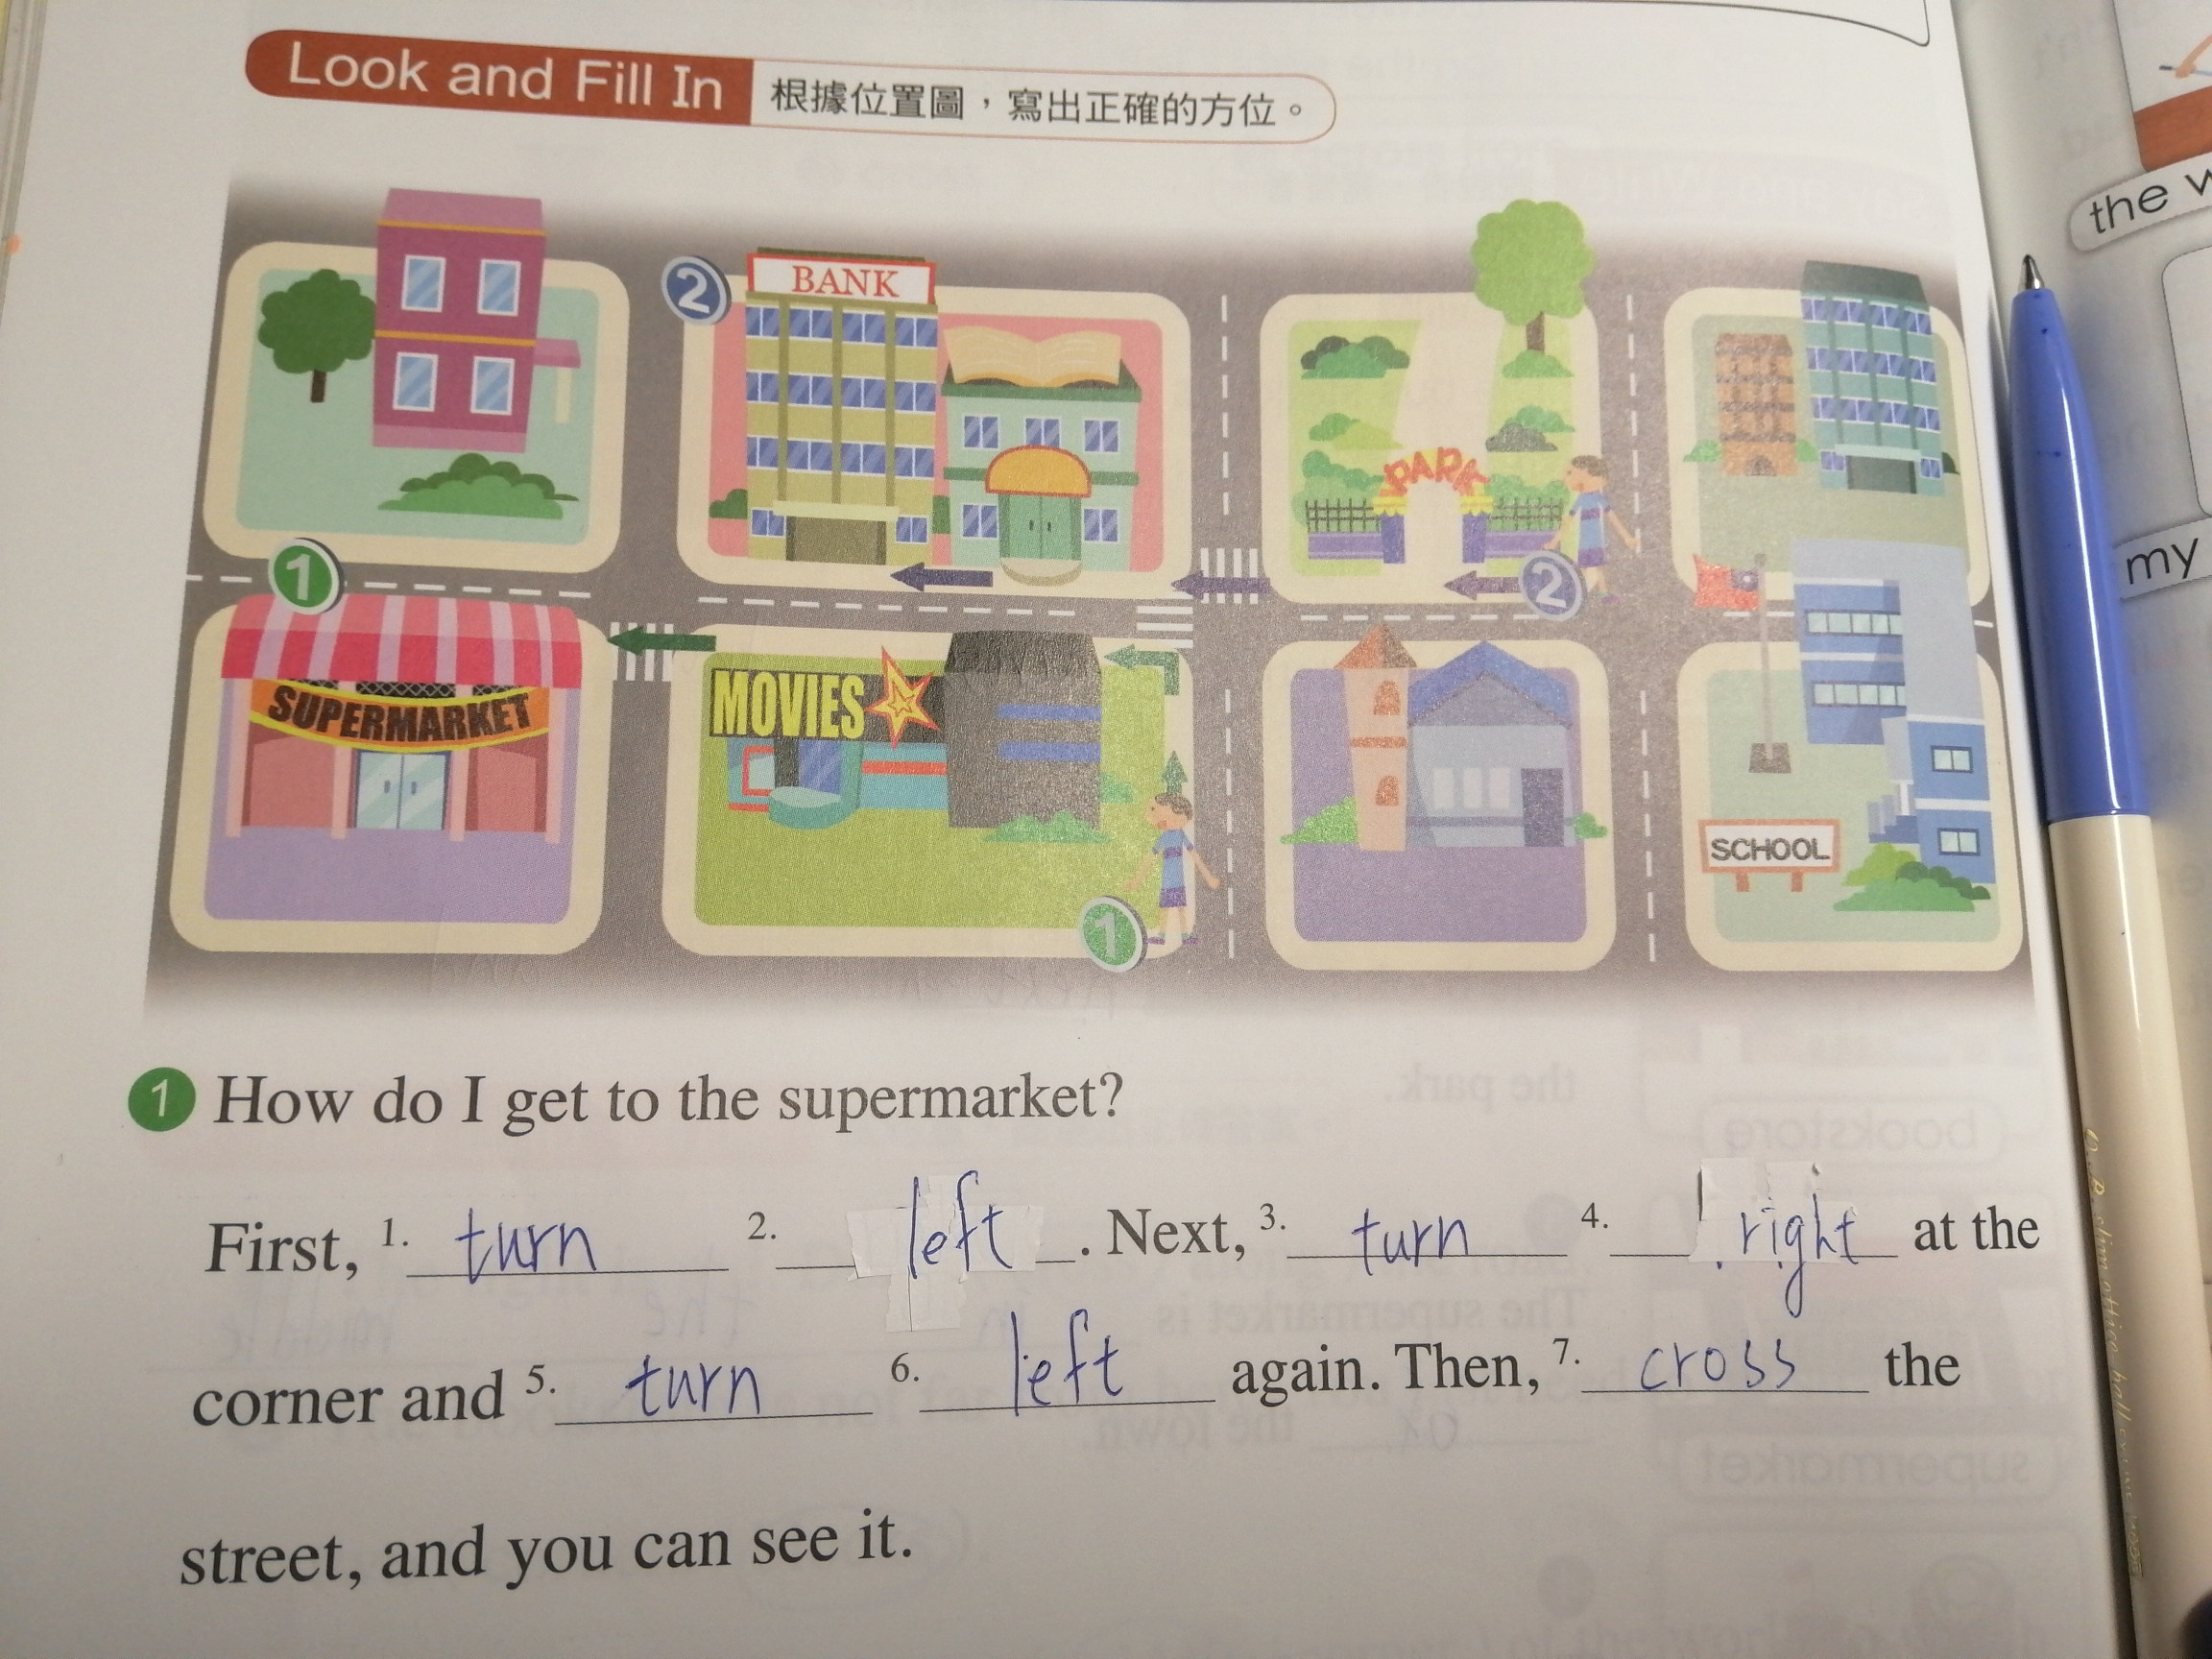 Look and Fill In 根據位置圖，寫出正確的方位。
the w
2
BANK
PARK
my
1
2
SUPERMARKET
MOVIES
SCHOOL
1
1 How do I get to the supermarket?
First, 1. turn 2. left. Next, 3. turn 4. right at the
corner and 5. turn 6. left again. Then, 7. cross the
street, and you can see it.